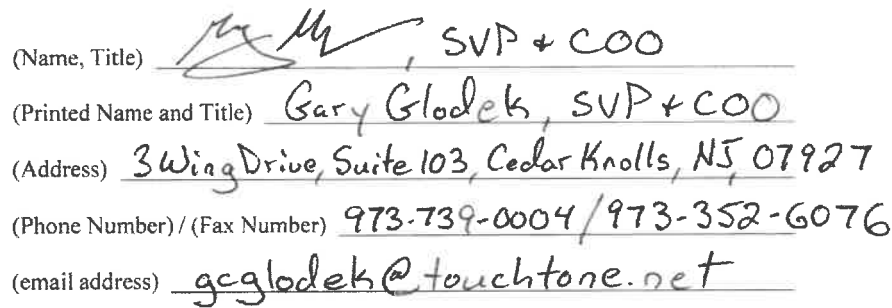 (Name, Title) , SVP + COO
(Printed Name and Title) Gary Glodek, SVP + COO
(Address) 3 Wing Drive, Suite 103, Cedar Knolls, NJ, 07927
(Phone Number) / (Fax Number) 973-739-0004 / 973-352-6076
(email address) gcglodek@touchtone.net